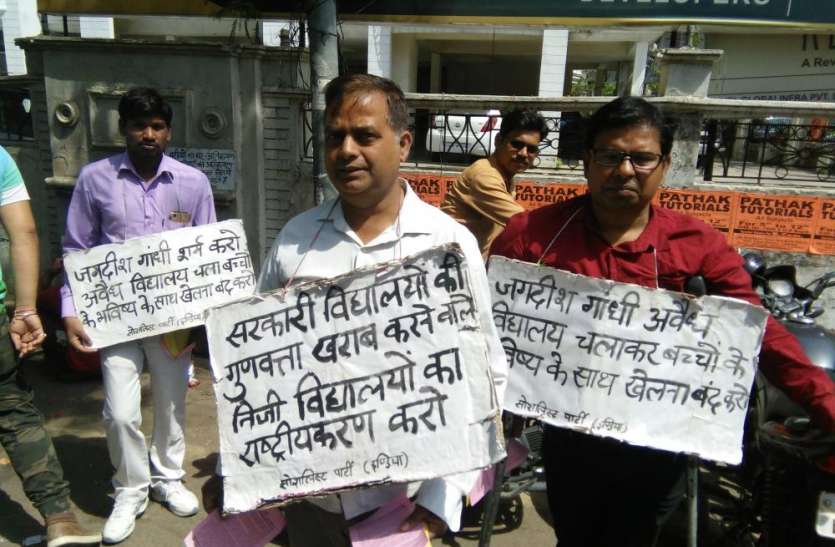 DEVELOPERS
A Rev
GLOBAL INFRA PVT.
PATHAK
TUTORIALS
PATHAK
TUTORIALS
PATHAK
TUTORIALS
जगदीश गांधी शर्म करो
अवैध विद्यालय चला बच्चों
के भविष्य के साथ खेलना बंद करो
सोशलिस्ट पार्टी (इण्डिया)
सरकारी विद्यालयों की
गुणवत्ता खराब करने वाले
निजी विद्यालयों का
राष्ट्रीयकरण करो
सोशलिस्ट पार्टी (इण्डिया)
जगदीश गांधी अवैध
विद्यालय चलाकर बच्चों के
भविष्य के साथ खेलना बंद करो
सोशलिस्ट पार्टी (इण्डिया)